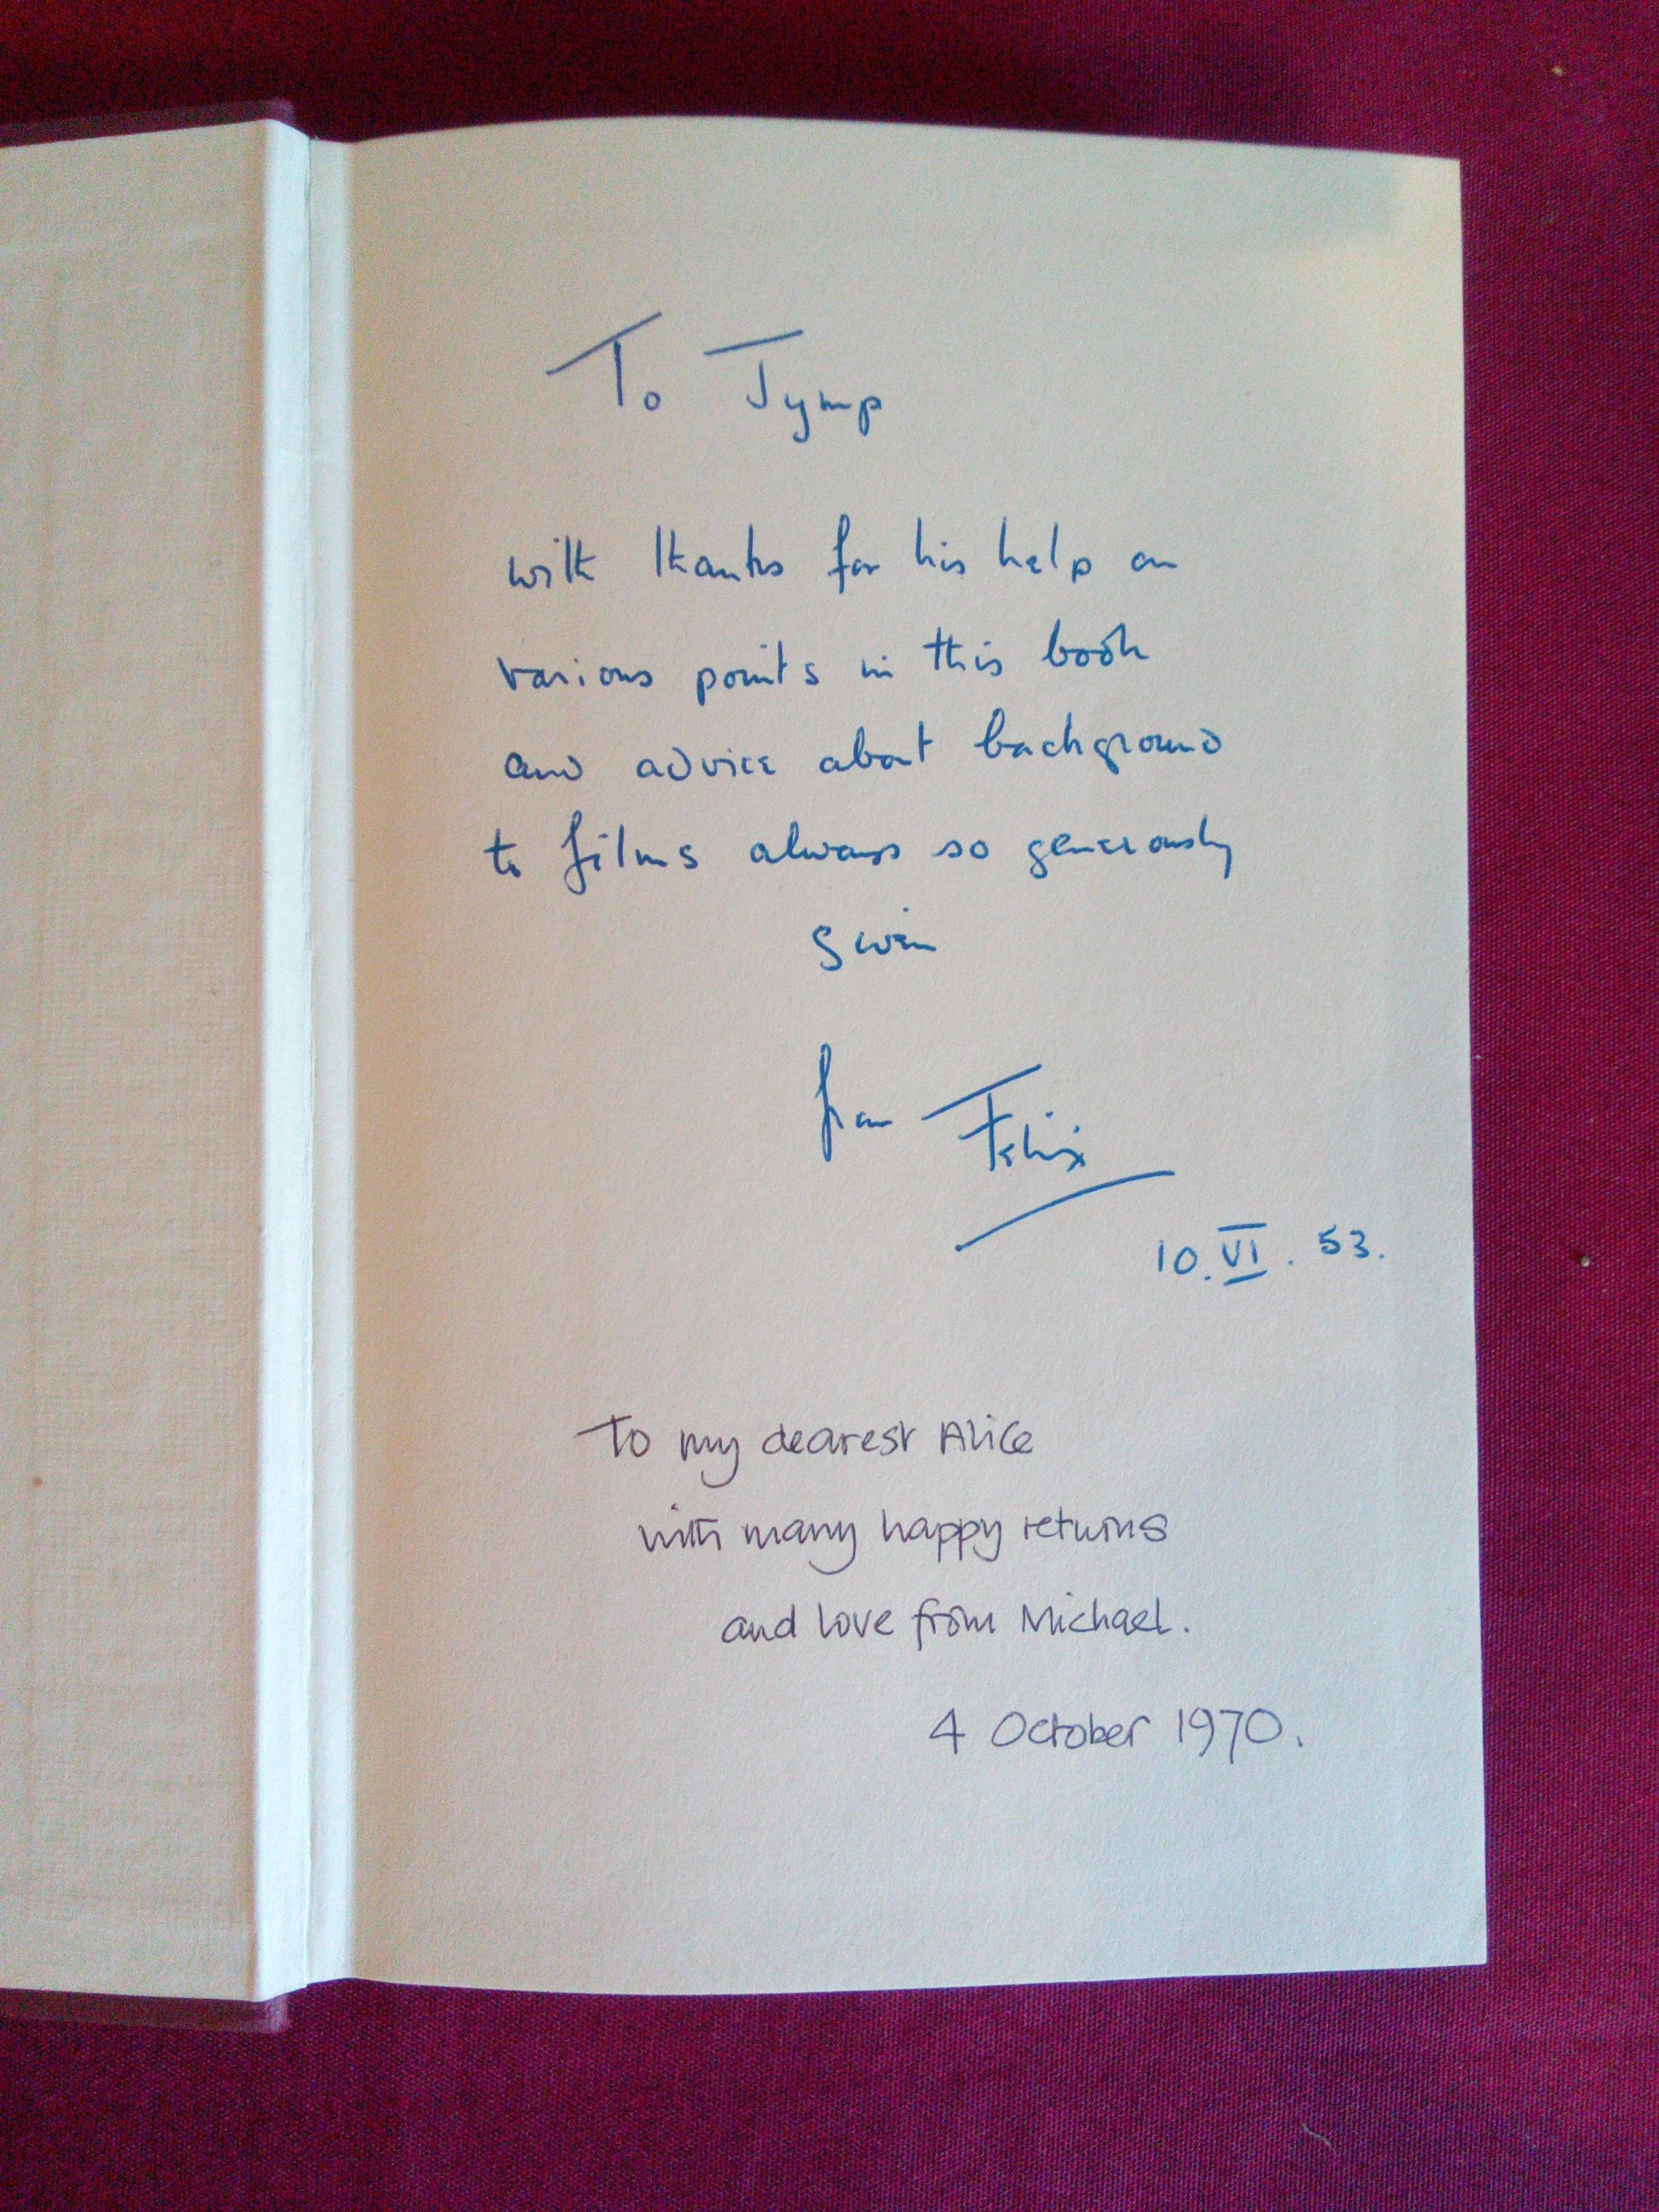 To Jymp
with thanks for his help on
various points in this book
and advice about background
to films always so generously
given
from Felix
10.VI.53.
To my dearest Alice
with many happy returns
and love from Michael.
4 October 1970.